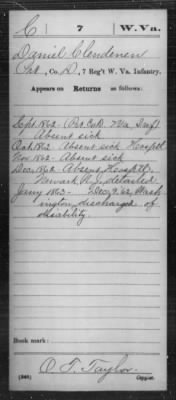 C 7 W.Va.
Daniel Clendenen
Pvt., Co. D, 7 Reg't W. Va. Infantry.
Appears on Returns as follows:
Sept. 1862 - (Pvt Co D 7 Va Inf)
Absent sick
Oct. 1862 Absent sick Hospt'l
Nov. 1862 - Absent sick
Dec. 1862 Absent Hosptl.
Newark N.J. detailed
Jany 1863 - Dec. 9. '62, Wash
ington, discharged of
disability.
Book mark:
O. T. Taylor
(546) Copyist.